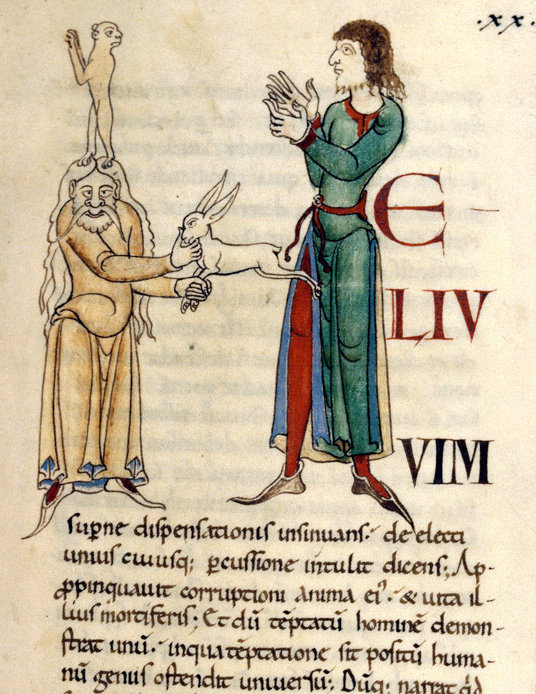 .xx.
E
LIU
VIM
suꝑne dispensationis insinuans. de electi
unius cuiusq; ꝑcussione intulit dicens; Ap-
ꝓpinquauit corruptioni anima ei'. & uita il-
lius mortiferis; Et dū tēptatū hominē demon-
strat unū. inqua tēptatione sit positū huma-
nū genus ostendit uniuersū; Dūq; narrat